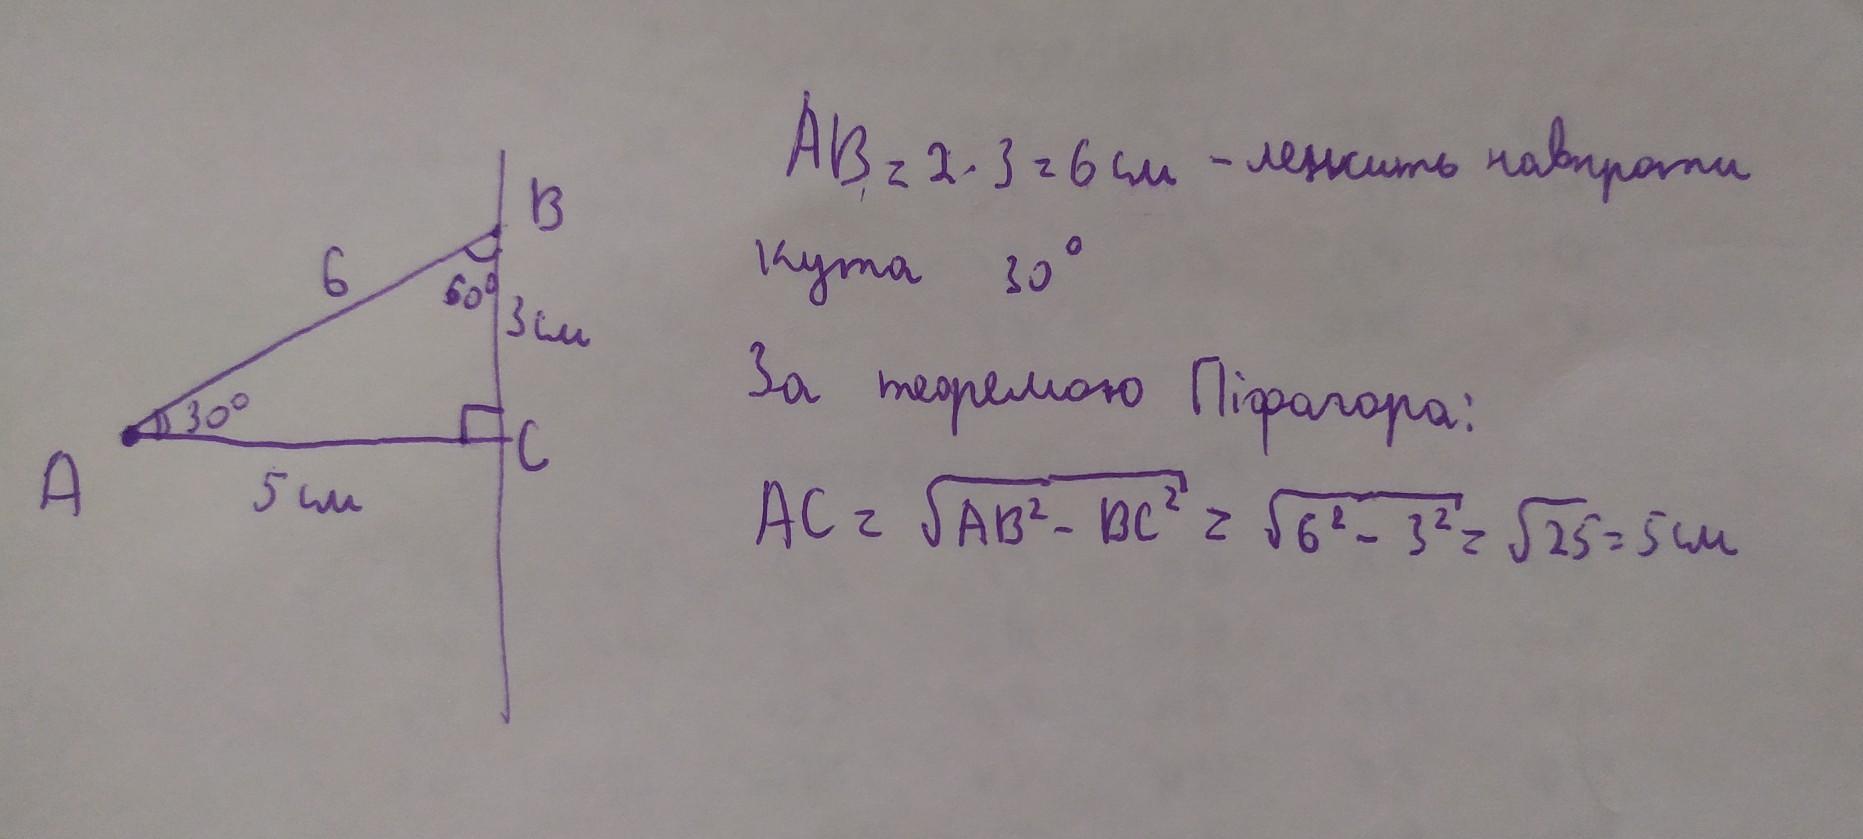 B
6
60°
3см
30°
A
C
5 см
AB = 2 · 3 = 6 см - лежить навпроти
кута 30°
За теоремою Піфагора:
AC = √AB² - BC² = √6² - 3² = √25 = 5 см